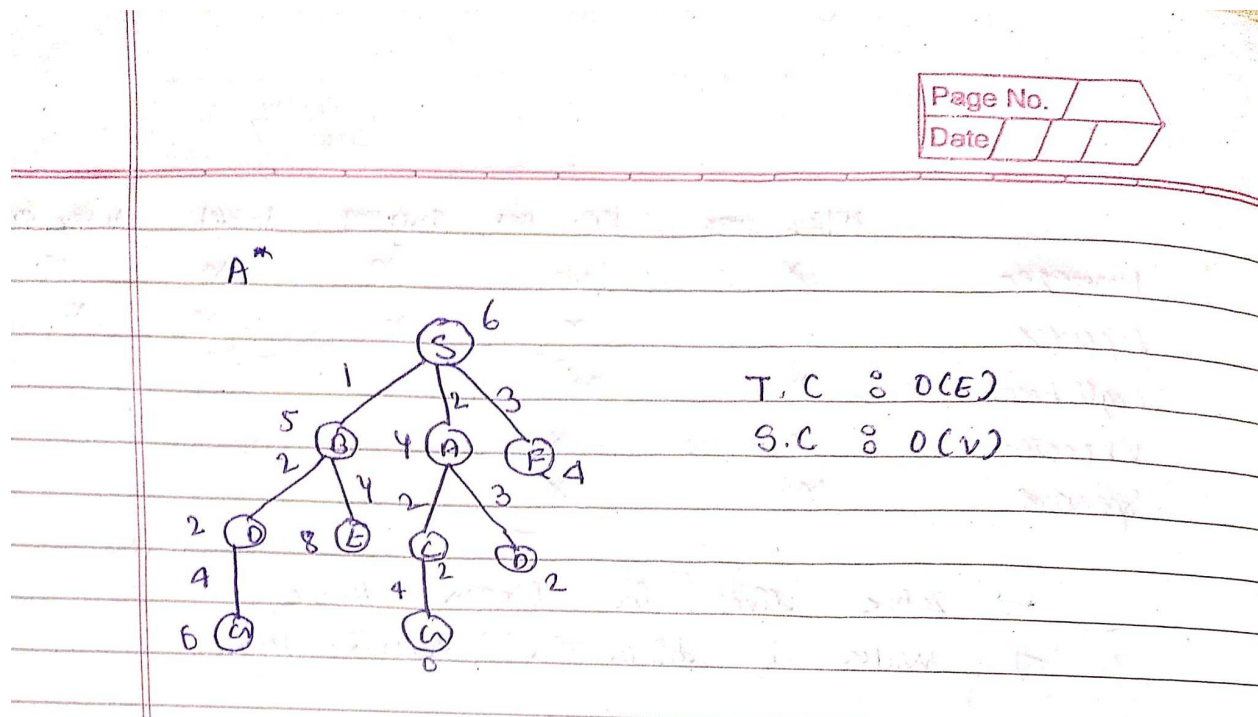 Page No.
Date
A*
6
S
1 2 3
5 B 4 A F 4
2 4 2 3
2 D 8 E C 2 D 2
4 4
G G
0
T.C : O(E)
S.C : O(V)